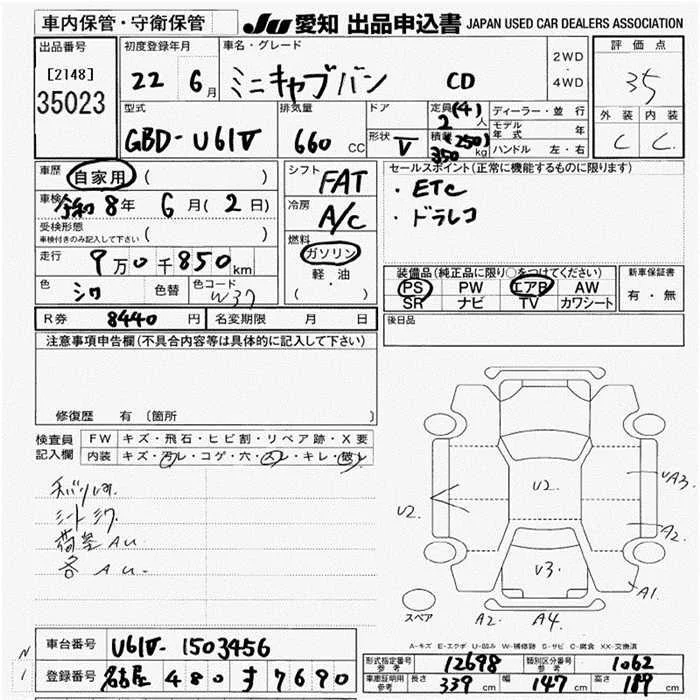 車内保管・守衛保管
JU 愛知 出品申込書 JAPAN USED CAR DEALERS ASSOCIATION
出品番号
[2148]
35023
初度登録年月
22年 6月
車名・グレード
ミニキャブバン CD
2WD
4WD
評価点
3.5
外装 内装
C C
型式
GBD-U61V
排気量
660 CC
ドア
形状 V
定員 (4)
2 人
積載 (250)
350 kg
ディーラー・並行
モデル年式 年
ハンドル 左・右
車歴 自家用 ( )
車検 令和 8年 6月 (2日)
受検形態
車検付きのみ記入して下さい ( )
走行 9万0千850km
色 シロ 色替 色コード W37
シフト FAT
冷房 A/C
燃料
ガソリン
軽・油
( )
セールスポイント(正常に機能するものに限ります)
・ETC
・ドラレコ
装備品(純正品に限り○をつけてください)
PS PW エアB AW
SR ナビ TV カワシート
新車保証書
有・無
R券 8440円 名変期限 月 日
後日品
注意事項申告欄(不具合内容等は具体的に記入して下さい)
修復歴 有 〔箇所 〕
検査員記入欄
FW キズ・飛石・ヒビ割・リペア跡・X要
内装 キズ・汚レ・コゲ・穴・スレ・キレ・破レ
シート シワ
荷室 AU.
各 AU.
U2
U2
U3
UA3
A2
A1
A2 A4
スペア
A-キズ E-エクボ U-凹み W-補修跡 S-サビ C-腐食 XX-交換済
車台番号 U61V-1503456
登録番号 名古屋 480 す 7690
形式指定番号 参考 12698 類別区分番号 参考 1062
車庫証明用 参考 長さ 339cm 幅 147cm 高さ 189cm